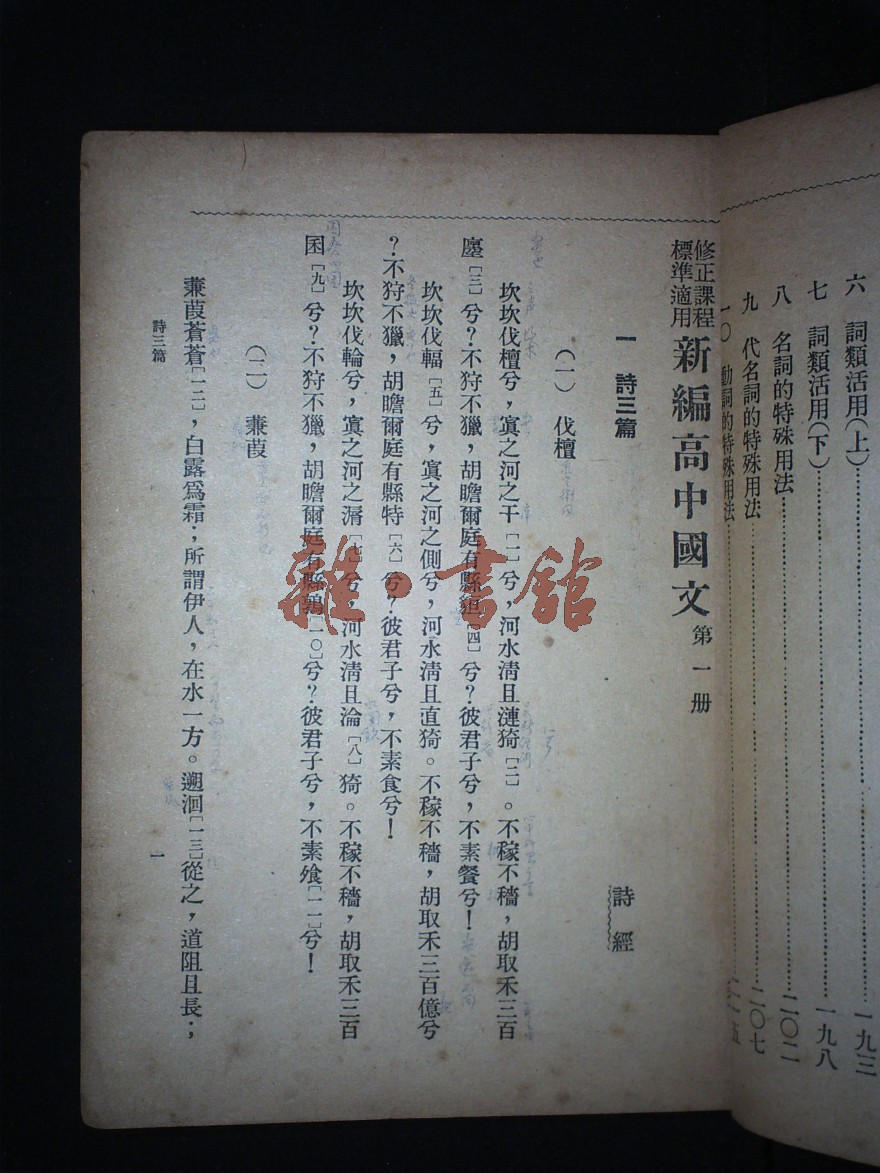 六　詞類活用(上)……一九三
七　詞類活用(下)……一九八
八　名詞的特殊用法……二〇二
九　代名詞的特殊用法……二〇七
一〇　動詞的特殊用法
修正課程標準適用　新編高中國文　第一册
一　詩三篇　　詩經
(一)　伐檀
坎坎伐檀兮，寘之河之干[一]兮，河水清且漣猗[二]。不稼不穡，胡取禾三百
廛[三]兮？不狩不獵，胡瞻爾庭有縣貆[四]兮？彼君子兮，不素餐兮！
坎坎伐輻[五]兮，寘之河之側兮，河水清且直猗。不稼不穡，胡取禾三百億兮
？不狩不獵，胡瞻爾庭有縣特[六]兮？彼君子兮，不素食兮！
坎坎伐輪兮，寘之河之漘[七]兮，河水清且淪[八]猗。不稼不穡，胡取禾三百
囷[九]兮？不狩不獵，胡瞻爾庭有縣鶉[一〇]兮？彼君子兮，不素飧[一一]兮！
(二)　蒹葭
蒹葭蒼蒼[一二]，白露爲霜；所謂伊人，在水一方。遡洄[一三]從之，道阻且長；
詩三篇
一
雜·書館